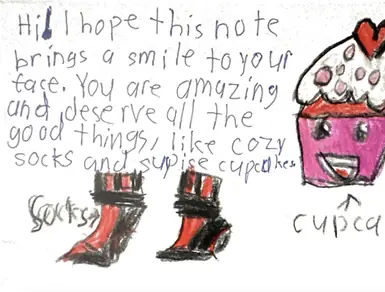 Hi! I hope this note
brings a smile to your
face. You are amazing
and deserve all the
good things, like cozy
socks and supise cupcakes
Socks
cupca